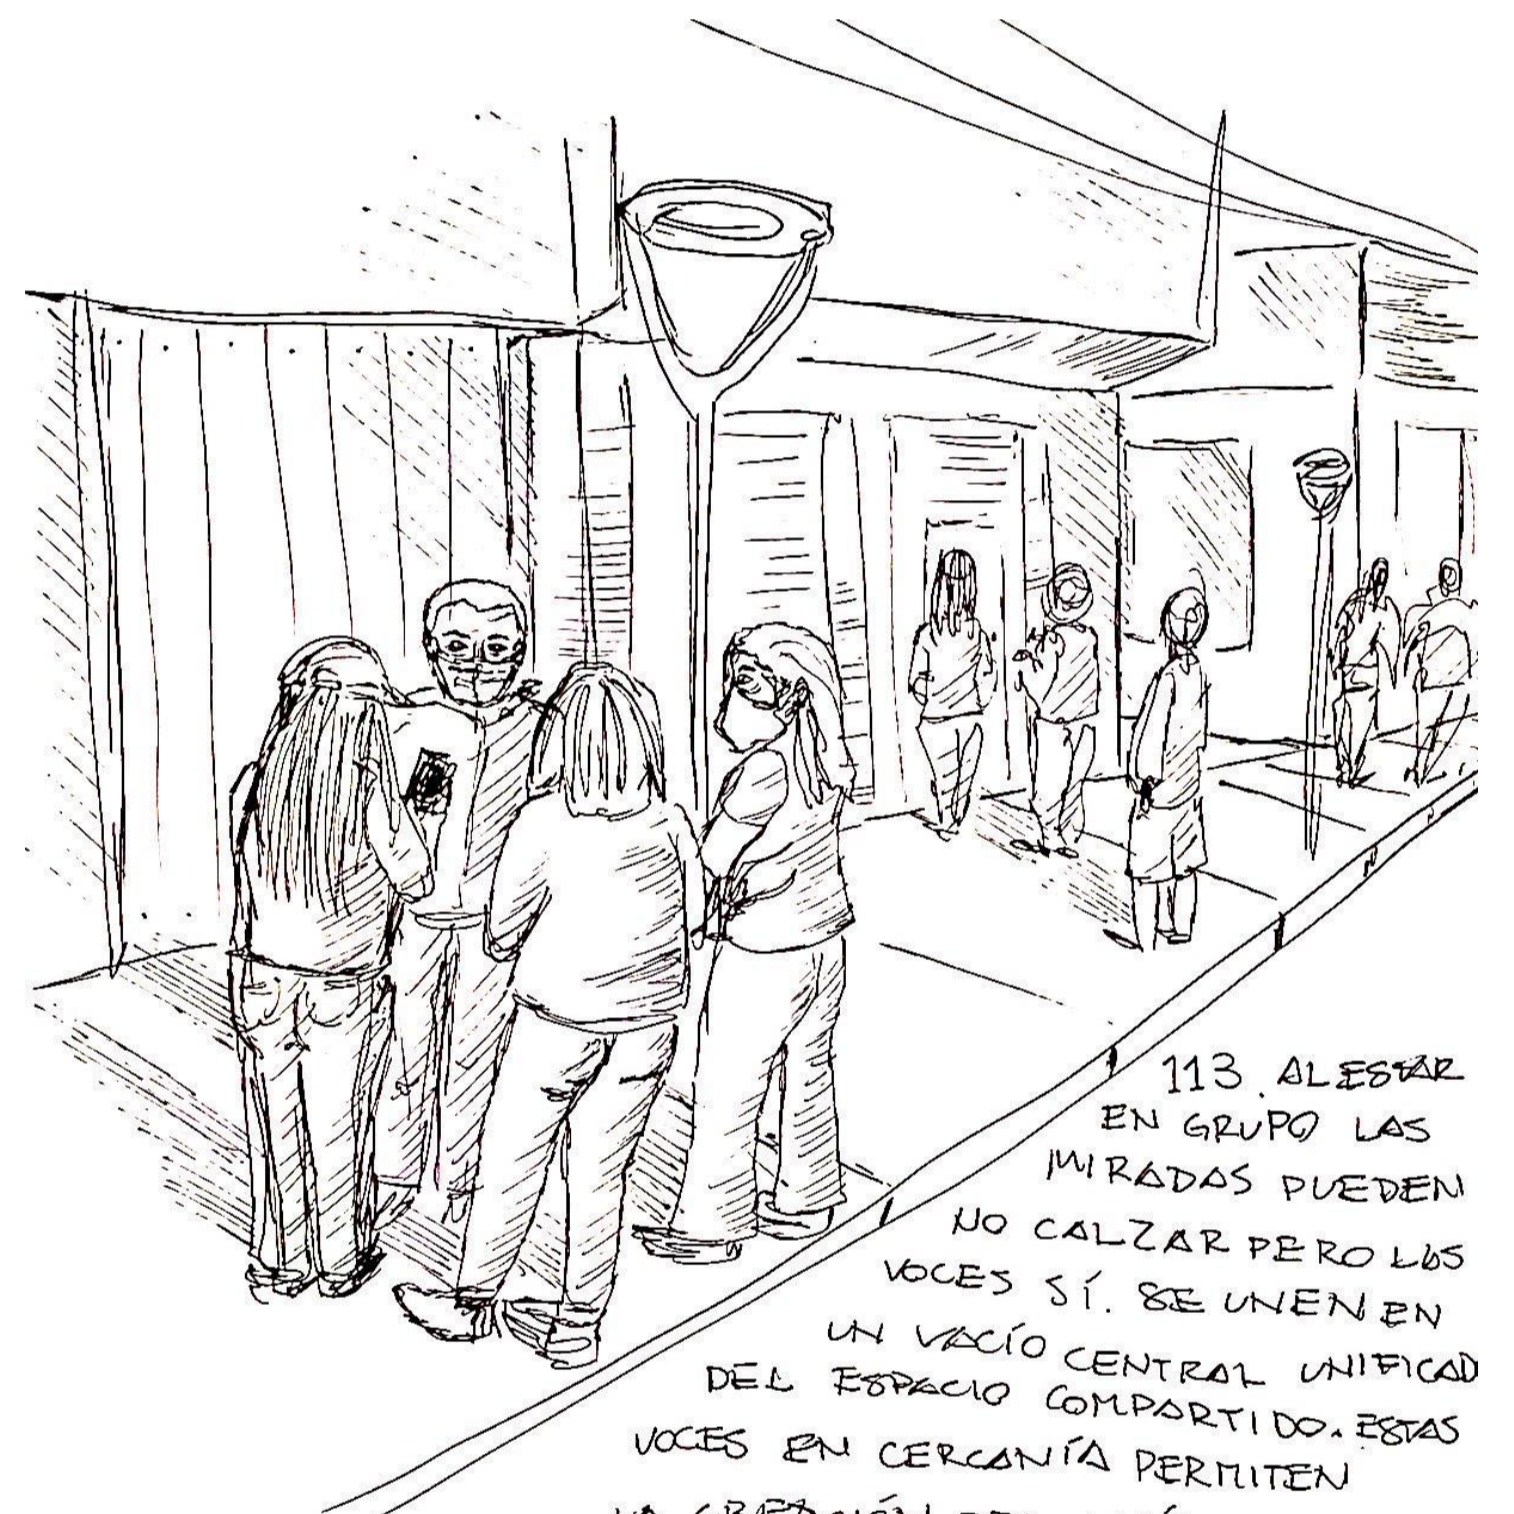 113. AL ESTAR
EN GRUPO LAS
MIRADAS PUEDEN
NO CALZAR PERO LAS
VOCES SÍ. SE UNEN EN
UN VACÍO CENTRAL UNIFICAD
DEL ESPACIO COMPARTIDO. ESTAS
VOCES EN CERCANÍA PERMITEN